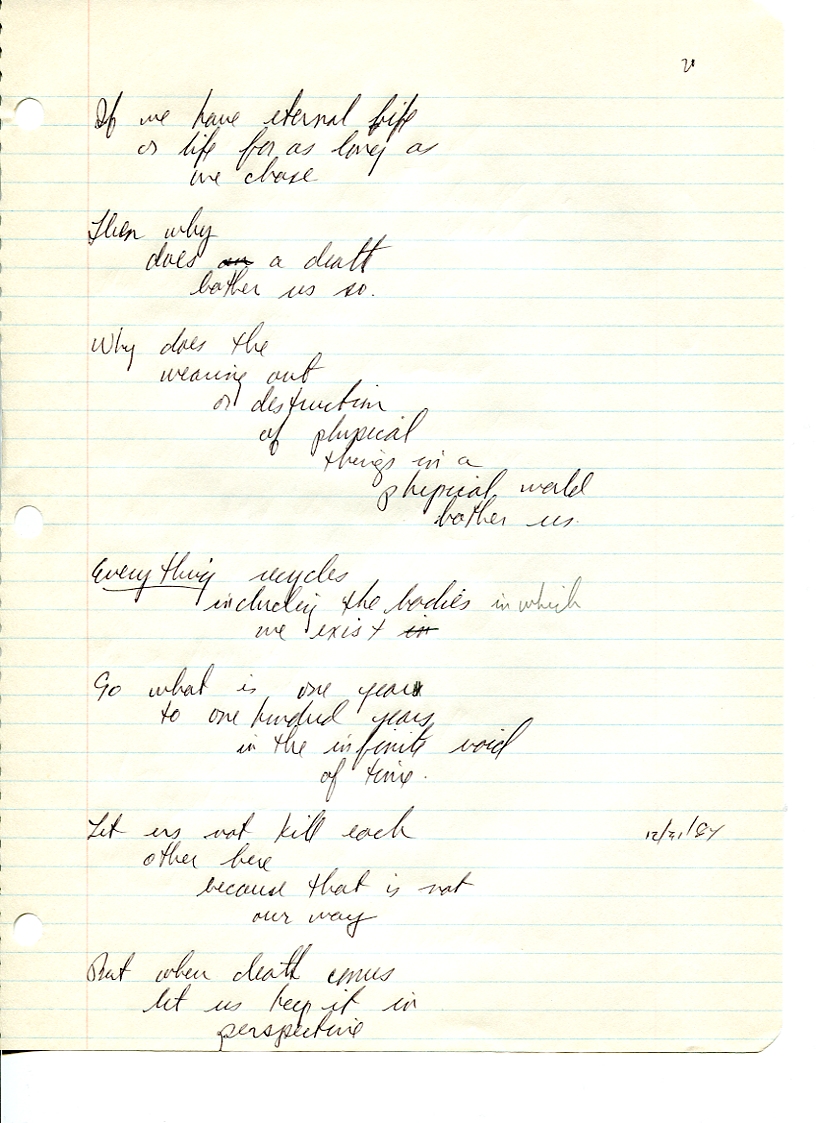 If we have eternal life
or life for as long as
we chose
Then why
does a death
bother us so.
Why does the
wearing out
or destruction
of physical
things in a
physical world
bother us.
Everything recycles
including the bodies in which
we exist
So what is one year
to one hundred years
in the infinite void
of time.
Let us not kill each
12/31/84
other here
because that is not
our way
But when death comes
let us keep it in
perspective